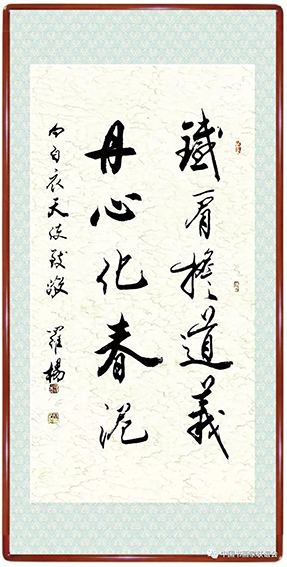 鐵肩擔道義
丹心化春泥
向白衣天使致敬 羅楊
中国书画家联谊会